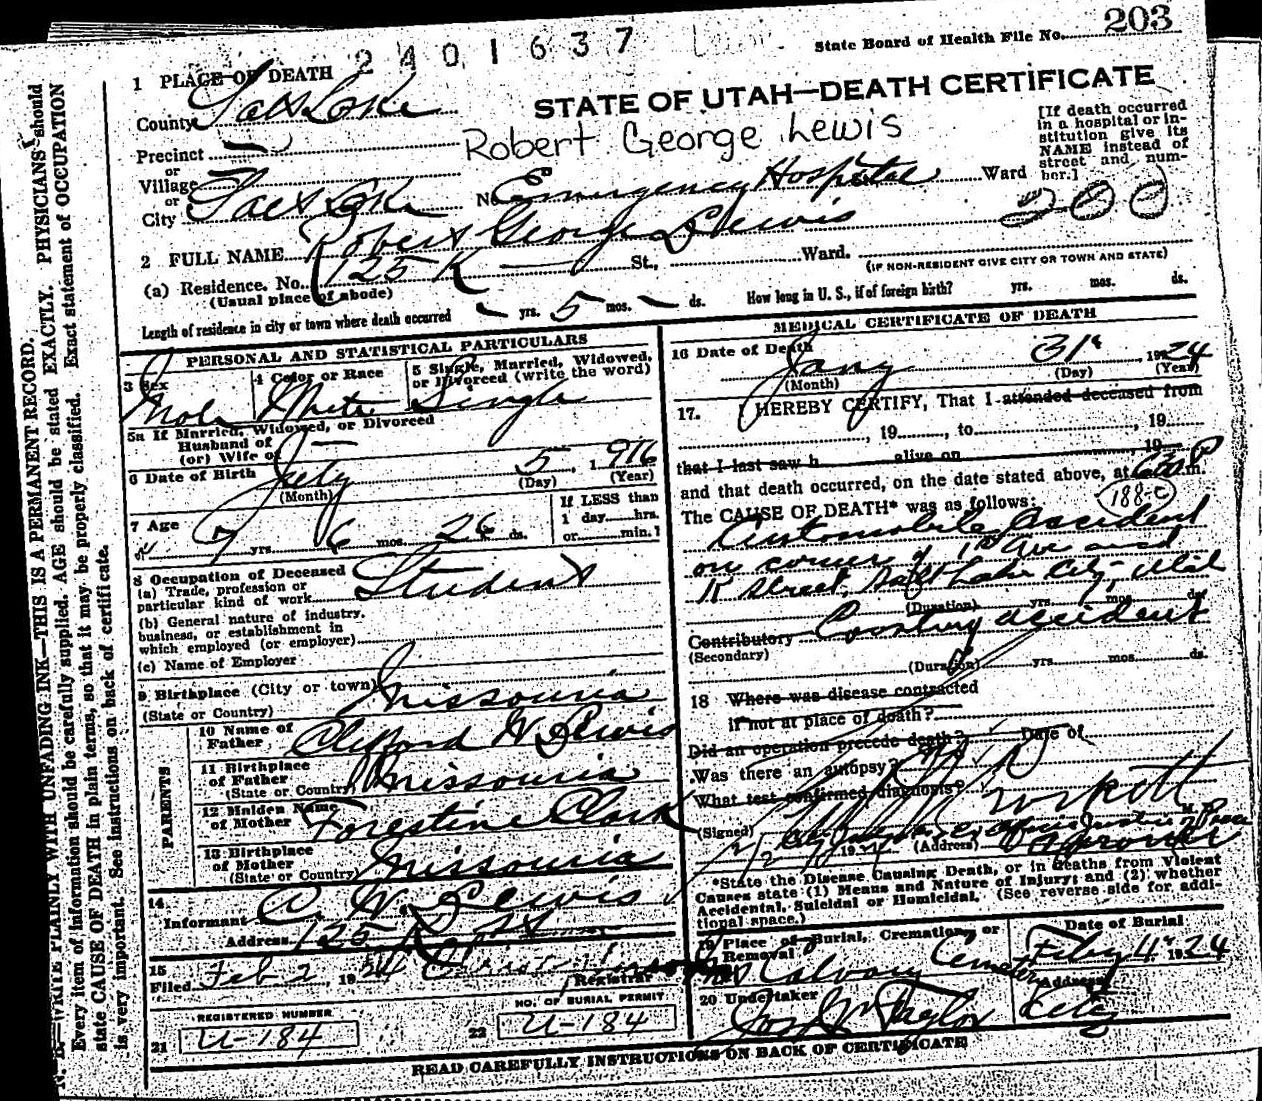 203
State Board of Health File No.
2401637
1 PLACE OF DEATH
STATE OF UTAH—DEATH CERTIFICATE
County Salt Lake
Robert George Lewis
[If death occurred
in a hospital or in-
stitution give its
NAME instead of
street and num-
ber.]
Precinct
or
Village
or
City Salt Lake No. Emergency Hospital Ward
200
2 FULL NAME Robert George Lewis
(a) Residence. No. 125 K St., Ward.
(Usual place of abode)
(IF NON-RESIDENT GIVE CITY OR TOWN AND STATE)
Length of residence in city or town where death occurred — yrs. 5 mos. — ds. How long in U. S., if of foreign birth? yrs. mos. ds.
PERSONAL AND STATISTICAL PARTICULARS
3 Sex
Male
4 Color or Race
White
5 Single, Married, Widowed,
or Divorced (write the word)
Single
5a If Married, Widowed, or Divorced
Husband of
(or) Wife of
6 Date of Birth July 5, 1916
(Month) (Day) (Year)
7 Age
7 yrs. 6 mos. 26 ds.
If LESS than
1 day......hrs.
or......min.?
8 Occupation of Deceased
(a) Trade, profession or
particular kind of work Student
(b) General nature of industry,
business, or establishment in
which employed (or employer)
(c) Name of Employer
9 Birthplace (City or town)
(State or Country) Missouria
PARENTS
10 Name of
Father Clifford W Lewis
11 Birthplace
of Father
(State or Country) Missouria
12 Maiden Name
of Mother Forestine Clark
13 Birthplace
of Mother
(State or Country) Missouria
14
Informant C. W. Lewis
Address 125 K St
15
Filed Feb 2 1924
Registrar
REGISTERED NUMBER
21 U-184
NO. OF BURIAL PERMIT
22 U-184
MEDICAL CERTIFICATE OF DEATH
16 Date of Death
Jany 31st, 1924
(Month) (Day) (Year)
17. I HEREBY CERTIFY, That I attended deceased from
, 19, to , 19
that I last saw h alive on , 19
and that death occurred, on the date stated above, at P m.
The CAUSE OF DEATH* was as follows:
188-c
Automobile accident
on corner of 1st Ave and
K Street, Salt Lake City, Utah
(Duration) yrs. mos. ds.
Contributory Coasting accident
(Secondary)
(Duration) yrs. mos. ds.
18 Where was disease contracted
if not at place of death?
Did an operation precede death? Date of
Was there an autopsy?
What test confirmed diagnosis?
(Signed) M. D.
2/2 1924 (Address)
*State the Disease Causing Death, or in deaths from Violent
Causes state (1) Means and Nature of Injury; and (2) whether
Accidental, Suicidal or Homicidal. (See reverse side for addi-
tional space.)
19 Place of Burial, Cremation, or
Removal
Mt Calvary Cemetery
Date of Burial
Feby 4th 1924
20 Undertaker
Jos Wm Taylor
Address
City
READ CAREFULLY INSTRUCTIONS ON BACK OF CERTIFICATE
N. B.—WRITE PLAINLY WITH UNFADING INK—THIS IS A PERMANENT RECORD.
Every item of information should be carefully supplied. AGE should be stated EXACTLY. PHYSICIANS should
state CAUSE OF DEATH in plain terms, so that it may be properly classified. Exact statement of OCCUPATION
is very important. See instructions on back of certificate.